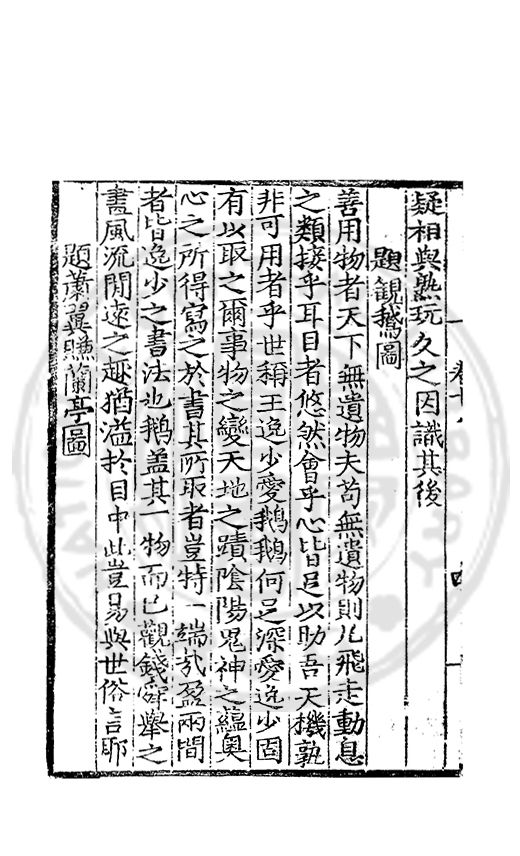 疑相與熟玩久之因識其後
題觀鵝圖
善用物者天下無遺物夫苟無遺物則凡飛走動息
之類接乎耳目者悠然會乎心皆足以助吾天機孰
非可用者乎世稱王逸少愛鵝鵝何足深愛逸少固
有以取之爾事物之變天地之蹟陰陽鬼神之蘊奧
心之所得寫之於書其所取者豈特一端哉盈兩間
者皆逸少之書法也鵝盖其一物而已觀錢舜舉之
畫風流閒遠之趣猶溢於目中此豈易與世俗言耶
題蕭翼賺蘭亭圖